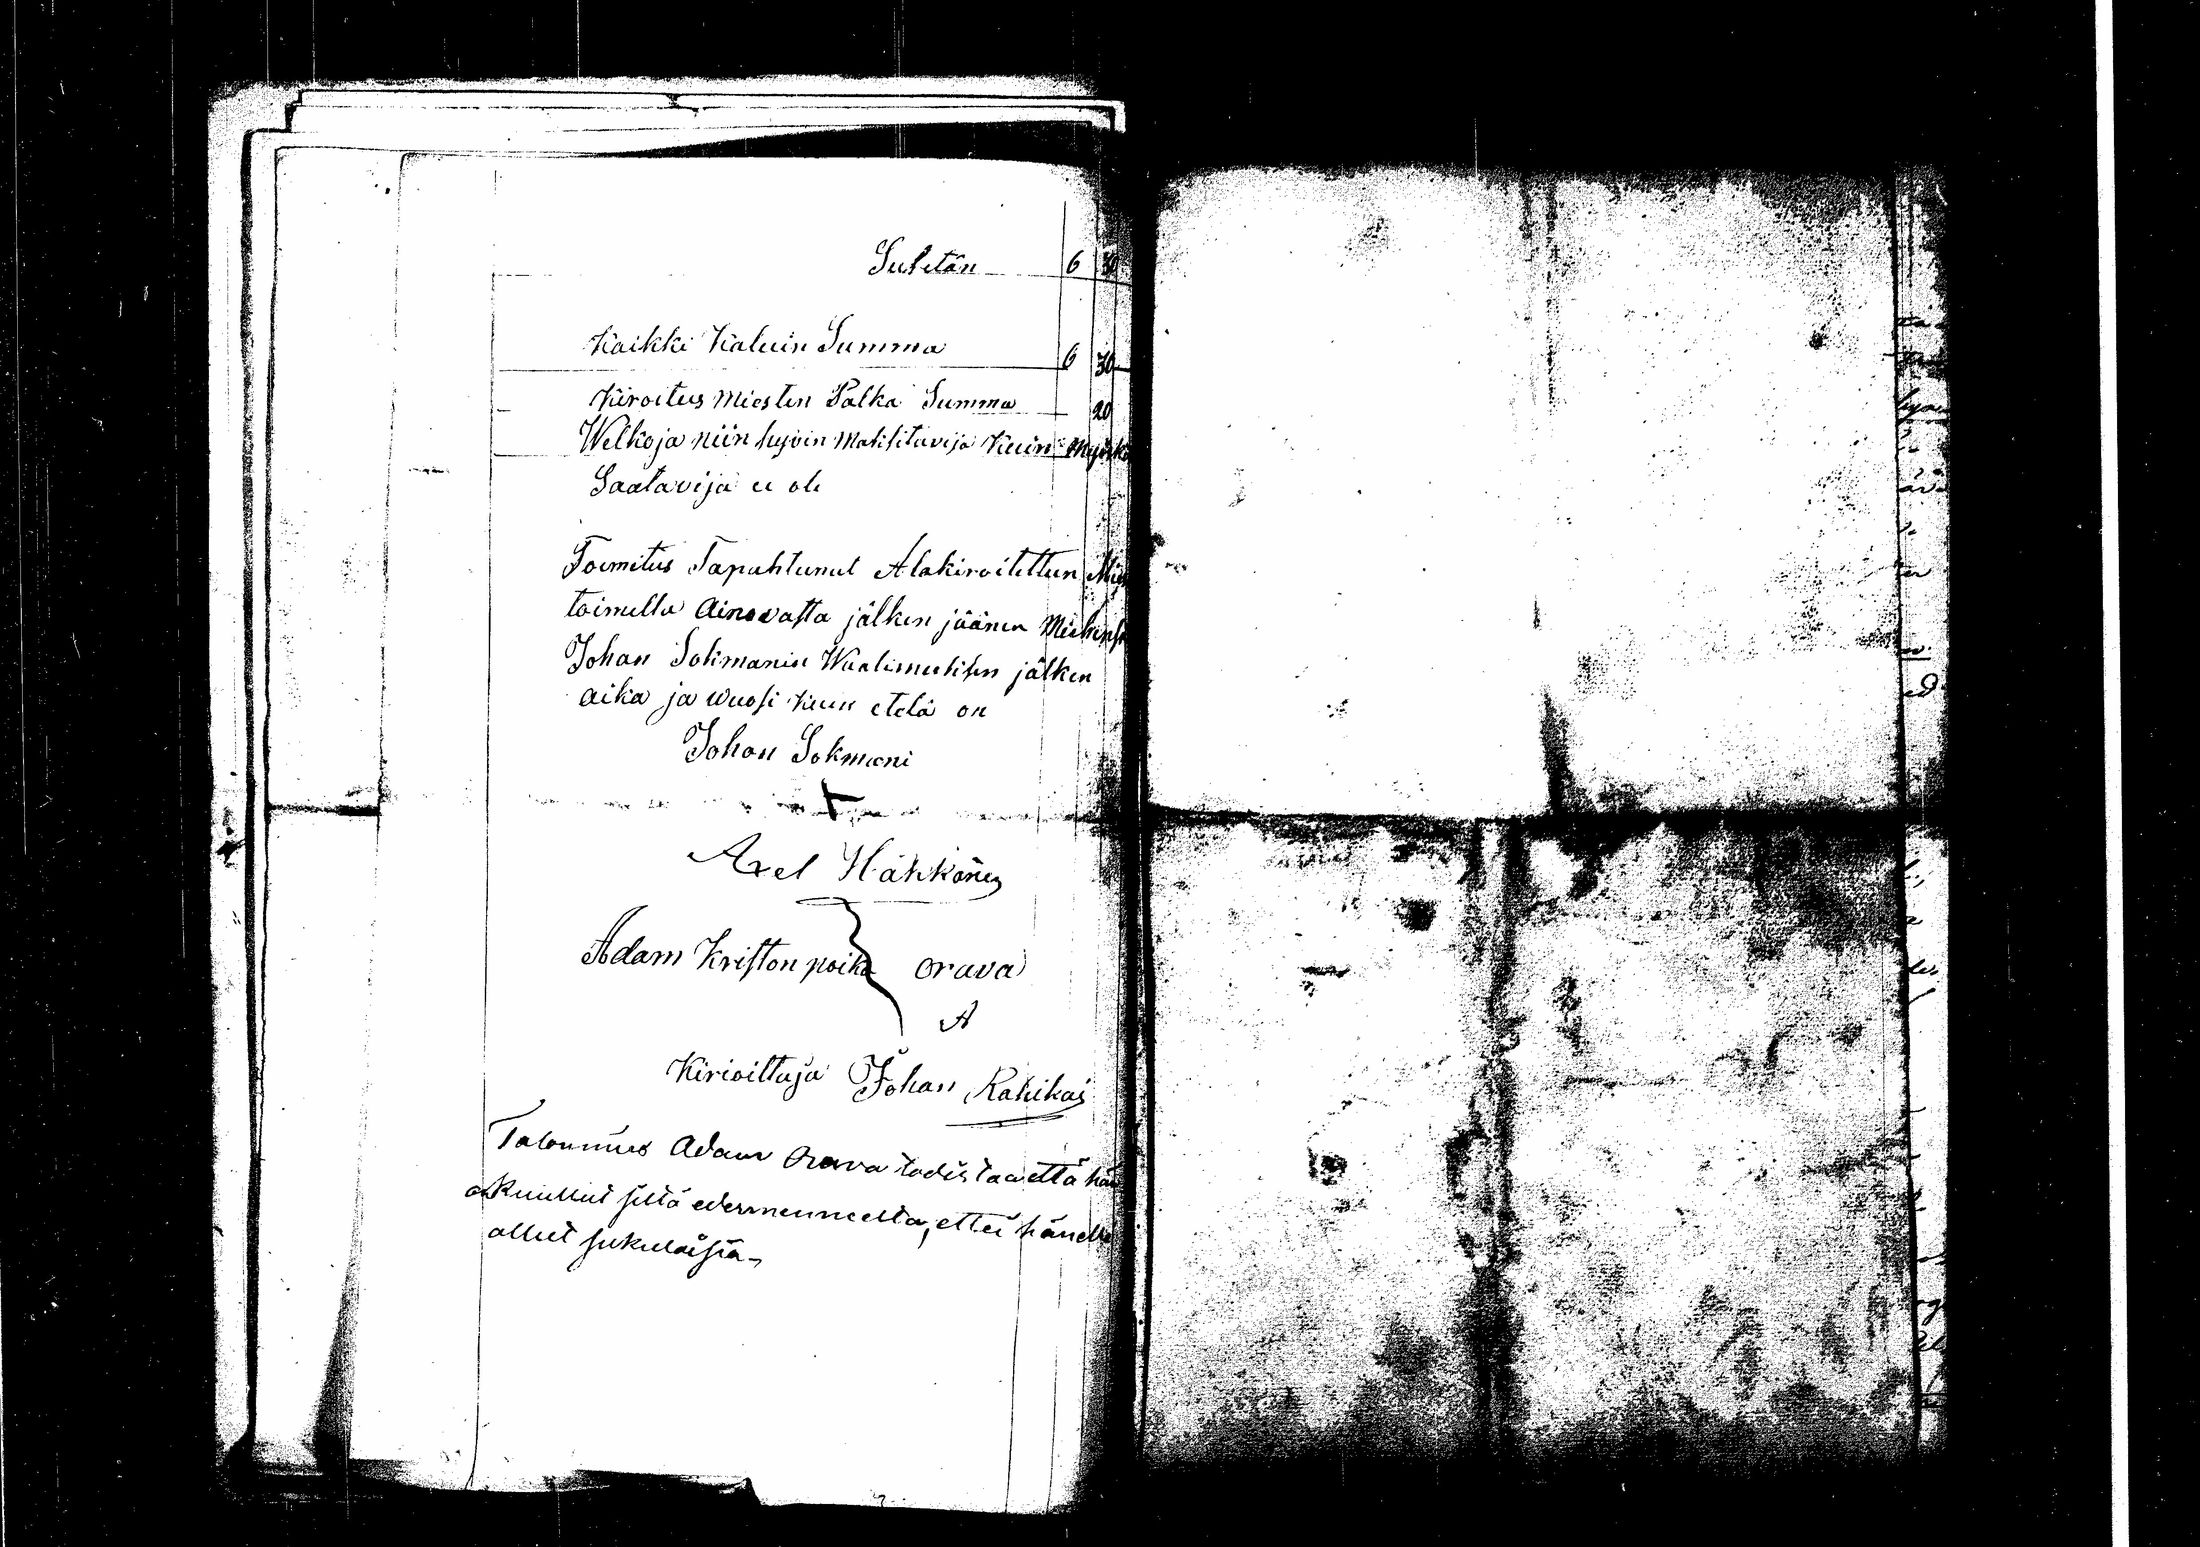 Suletän 6 30
Kaikki Kaluin Summa 6 30
Kiroitus Miesten Palka Summa 20
Welkoja niin hyvin Maksitavija Kuin Myöskä
Saatavija ei ole
Toimitus Tapahtunut Alakiroitettun
toimella Ainovasta jälken jäänen
Johan Sokmanin jälken
aika ja wuosi Kuin etelä on
Johan Sokmani
Axel Häkkänen
Adam Kriston poika orava
A
Kirioittaja Johan
Talonmies Adam Orava todistaa että hän
on Kuullut siltä edesmenneeltä, ettei hänellä
ollut sukulaisia